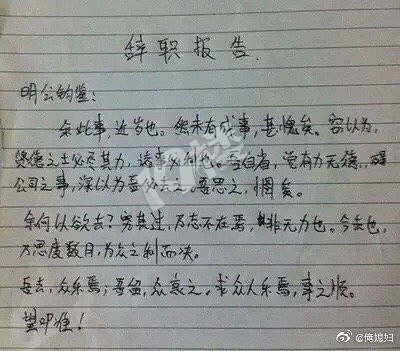 辞职报告
明公钧鉴:
余此事,近岁也。然未有成事,甚愧矣。窃以为,
怀德之士必尽其力,谋事必利也。吾自省,觉有力无德,碍
公司之事,深以为吾必去之。吾思之,惆矣。
余何以欲去?究其过,乃志不在焉,非无力也。今去也,
乃思度数月,为众之利而决。
吾去,众乐焉;吾留,众哀之。求众人乐焉,事之顺。
望叩准!
@俺媳妇